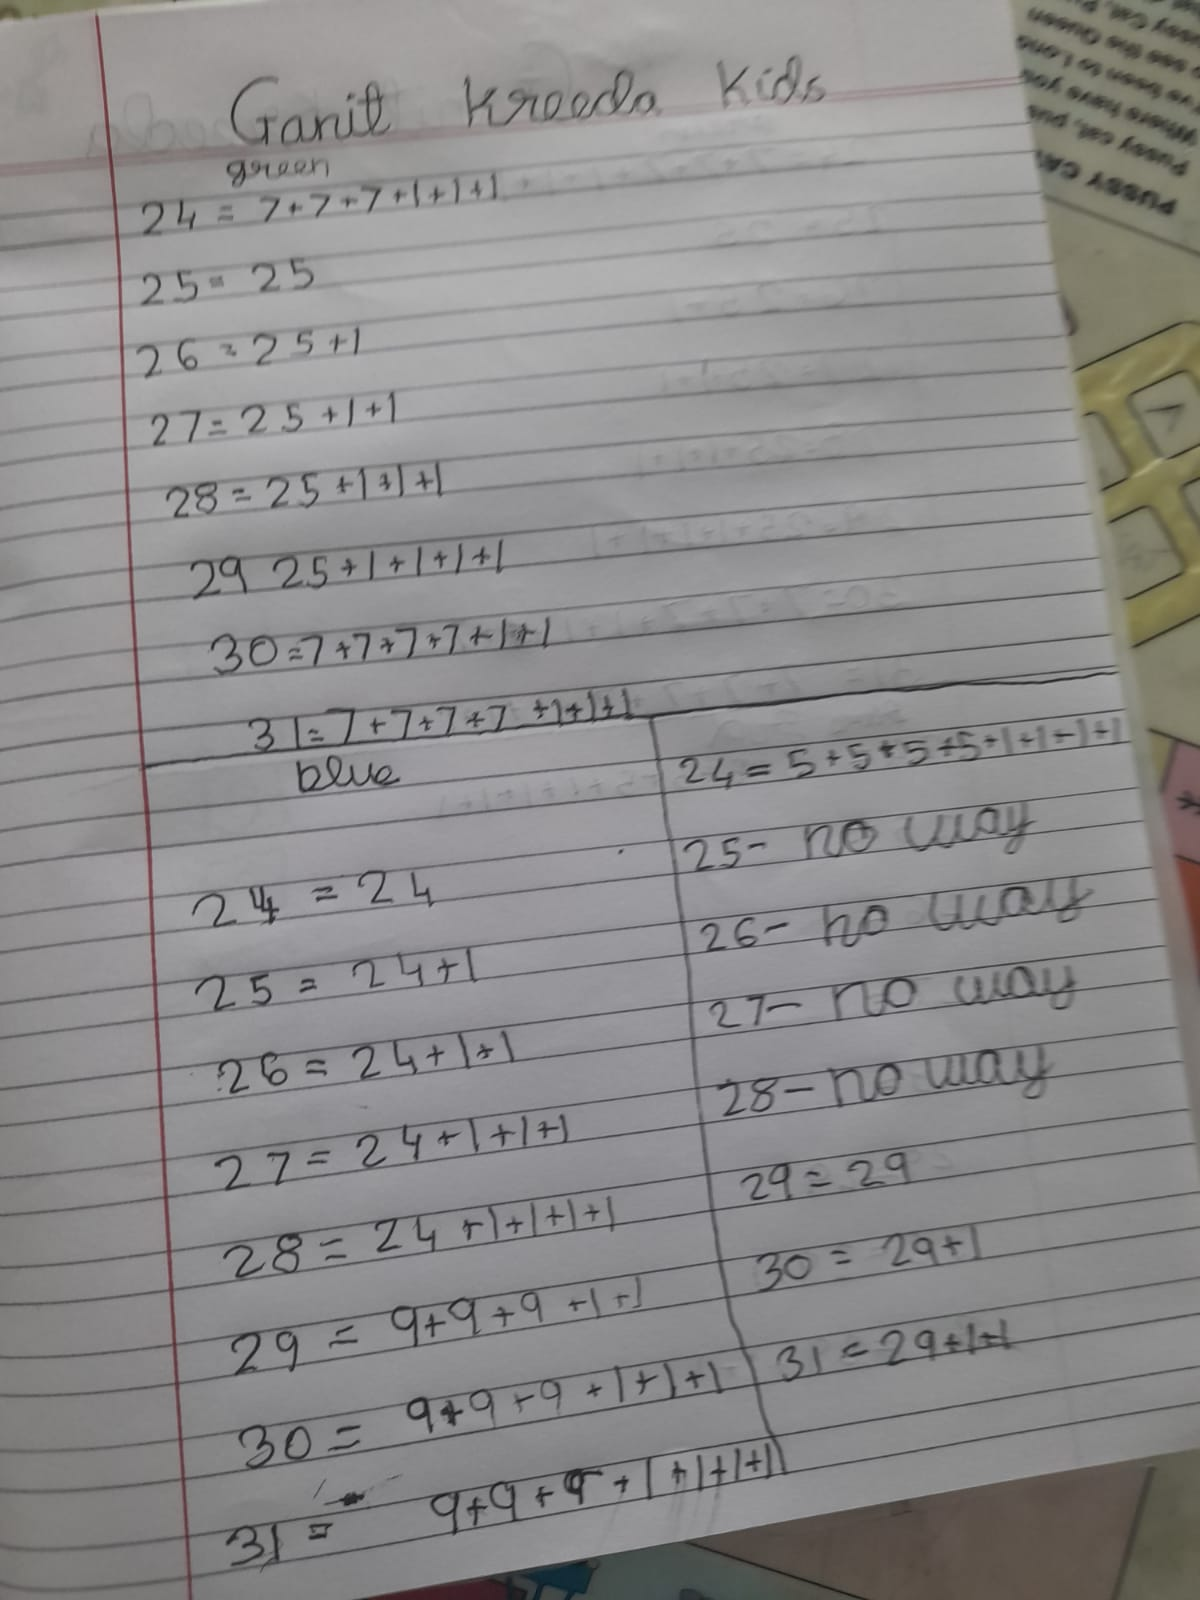 Ganit Kreeda Kids
green
24 = 7+7+7+1+1+1
25= 25
26 = 25+1
27= 25+1+1
28 = 25+1+1+1
29 25+1+1+1+1
30=7+7+7+7+1+1
31=7+7+7+7+1+1+1
blue
24 = 24
25 = 24+1
26 = 24+1+1
27= 24+1+1+1
28= 24+1+1+1+1
29 = 9+9+9+1+1
30= 9+9+9+1+1+1
31= 9+9+9+1+1+1+1
24=5+5+5+5+1+1+1+1
25- no way
26- no way
27- no way
28- no way
29=29
30= 29+1
31=29+1+1
PUSSY CA
Pussy cat, pus
Where have you
ve been to Lond
see the Queen
ussy Cat, P